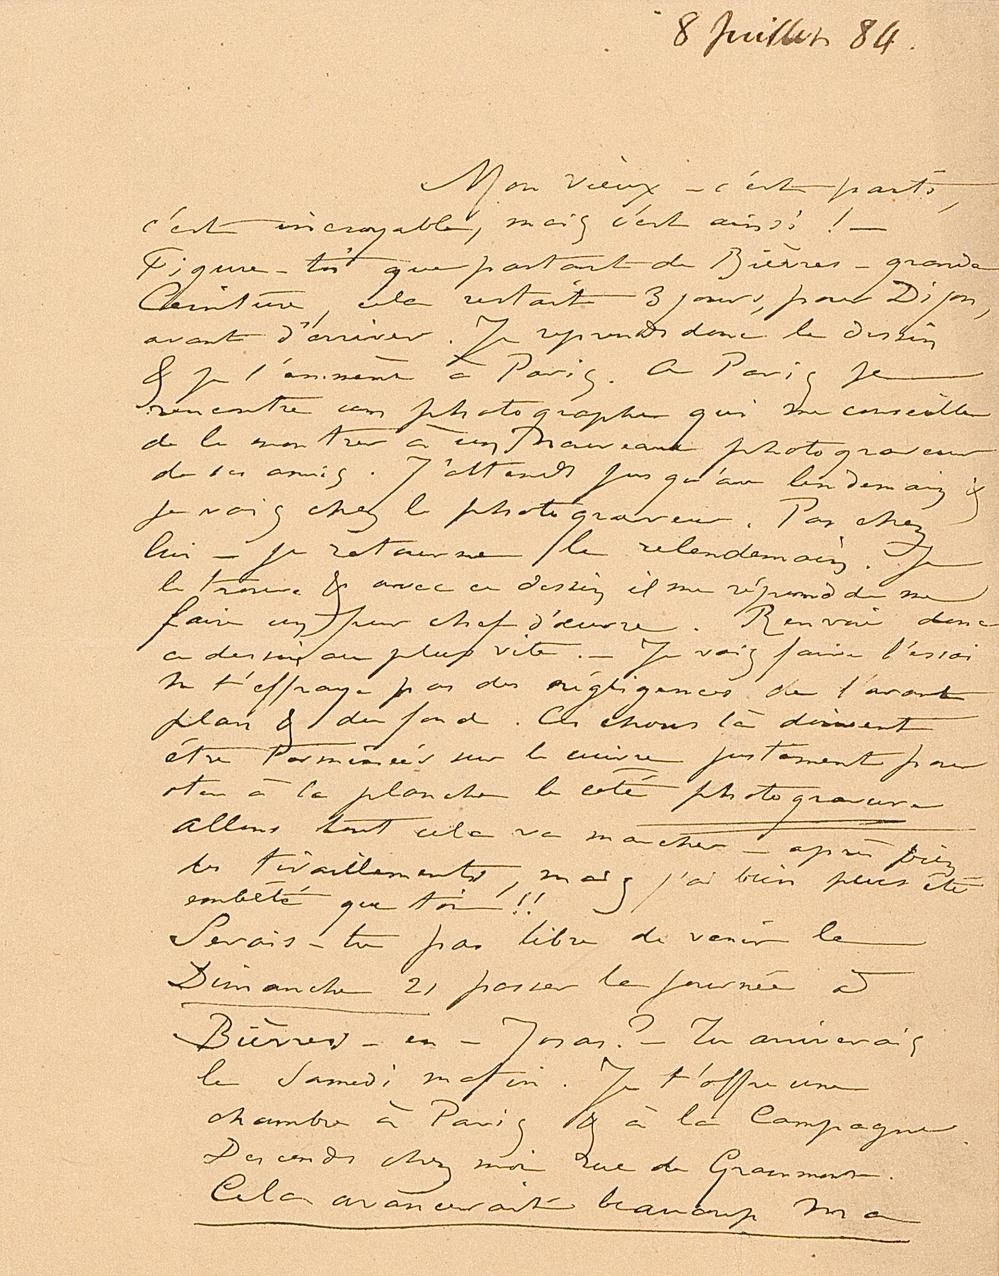 8 Juillet 84.
Mon vieux – c'est parti,
c'est incroyable, mais c'est ainsi ! –
Figure-toi que partant de Bièvres – grande
Ceinture, cela restait 3 jours, pour Dijon,
avant d'arriver. Je reprends donc le dessin
& je l'emmène à Paris. A Paris je
rencontre un photographe qui me conseille
de le montrer à un nouveau photograveur
de ses amis. J'attends jusqu'au lendemain &
je vais chez le photograveur. Pas chez
lui – je retourne le relendemain. Je
le trouve & avec ce dessin il me répond de me
faire un pur chef d'œuvre. Renvoie donc
ce dessin au plus vite. – Je vais faire l'essai
ne t'effraye pas des négligences de l'avant
plan & du fond. Ces choses là doivent
être terminées sur le cuivre justement pour
ôter à la planche le côté photogravure
Allons tout cela va marcher – après bien
des tiraillements, mais j'ai bien plus été
embêté que toi !!
Serais-tu pas libre de venir le
Dimanche 21 passer la journée à
Bièvres – en – Josas ? – Tu arriverais
le Samedi matin. Je t'offre une
chambre à Paris & à la Campagne.
Descends chez moi rue de Grammont.
Cela avancerait beaucoup ma